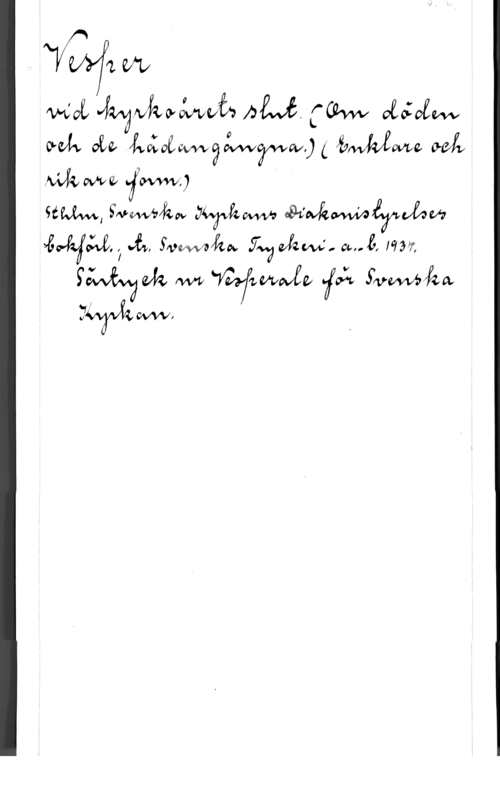 Vesper
vid kyrkoårets slut. (Om döden
och de hädangångna.) (Enklare och
rikare form.)
Sthlm, Svenska Kyrkans Diakonistyrelses
bokförl.; tr. Svenska Tryckeri-a.-b. 1937.
Särtryck ur Vesperale för Svenska
Kyrkan.